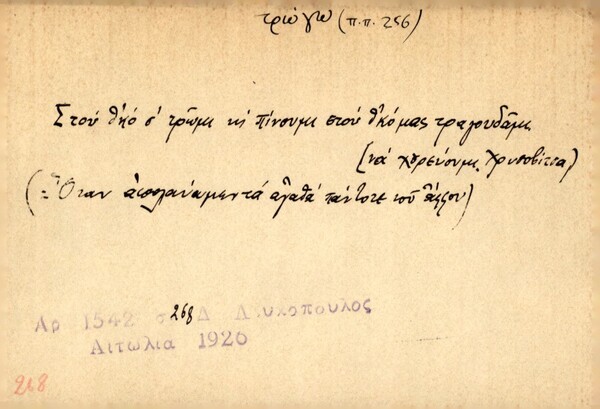 τρώγω (π.π. 256)
Στοῦ θ'κό σ' τρῶμι κὶ πίνουμι στοῦ θ'κό μας τραγουδᾶμι
(νά χορεύουμι. Χρυσοβίτσα)
(= Ὅταν ἀπολαύωμεν τά ἀγαθά πάντοτε τοῦ ἄλλου)
Αρ 1542 σ 268 Δ Λουκοπουλος
Αιτωλια 1920
268